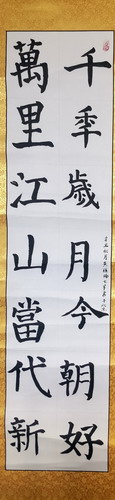 千年歲月今朝好
萬里江山當代新